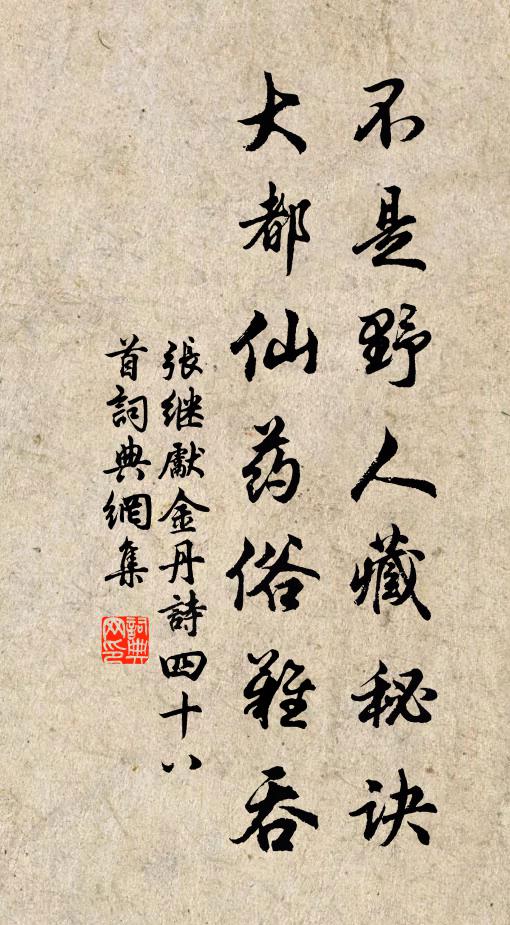 不是野人藏秘诀
大都仙药俗难吞
張继獻金丹詩四十八
首詞典網集
詞典
网印